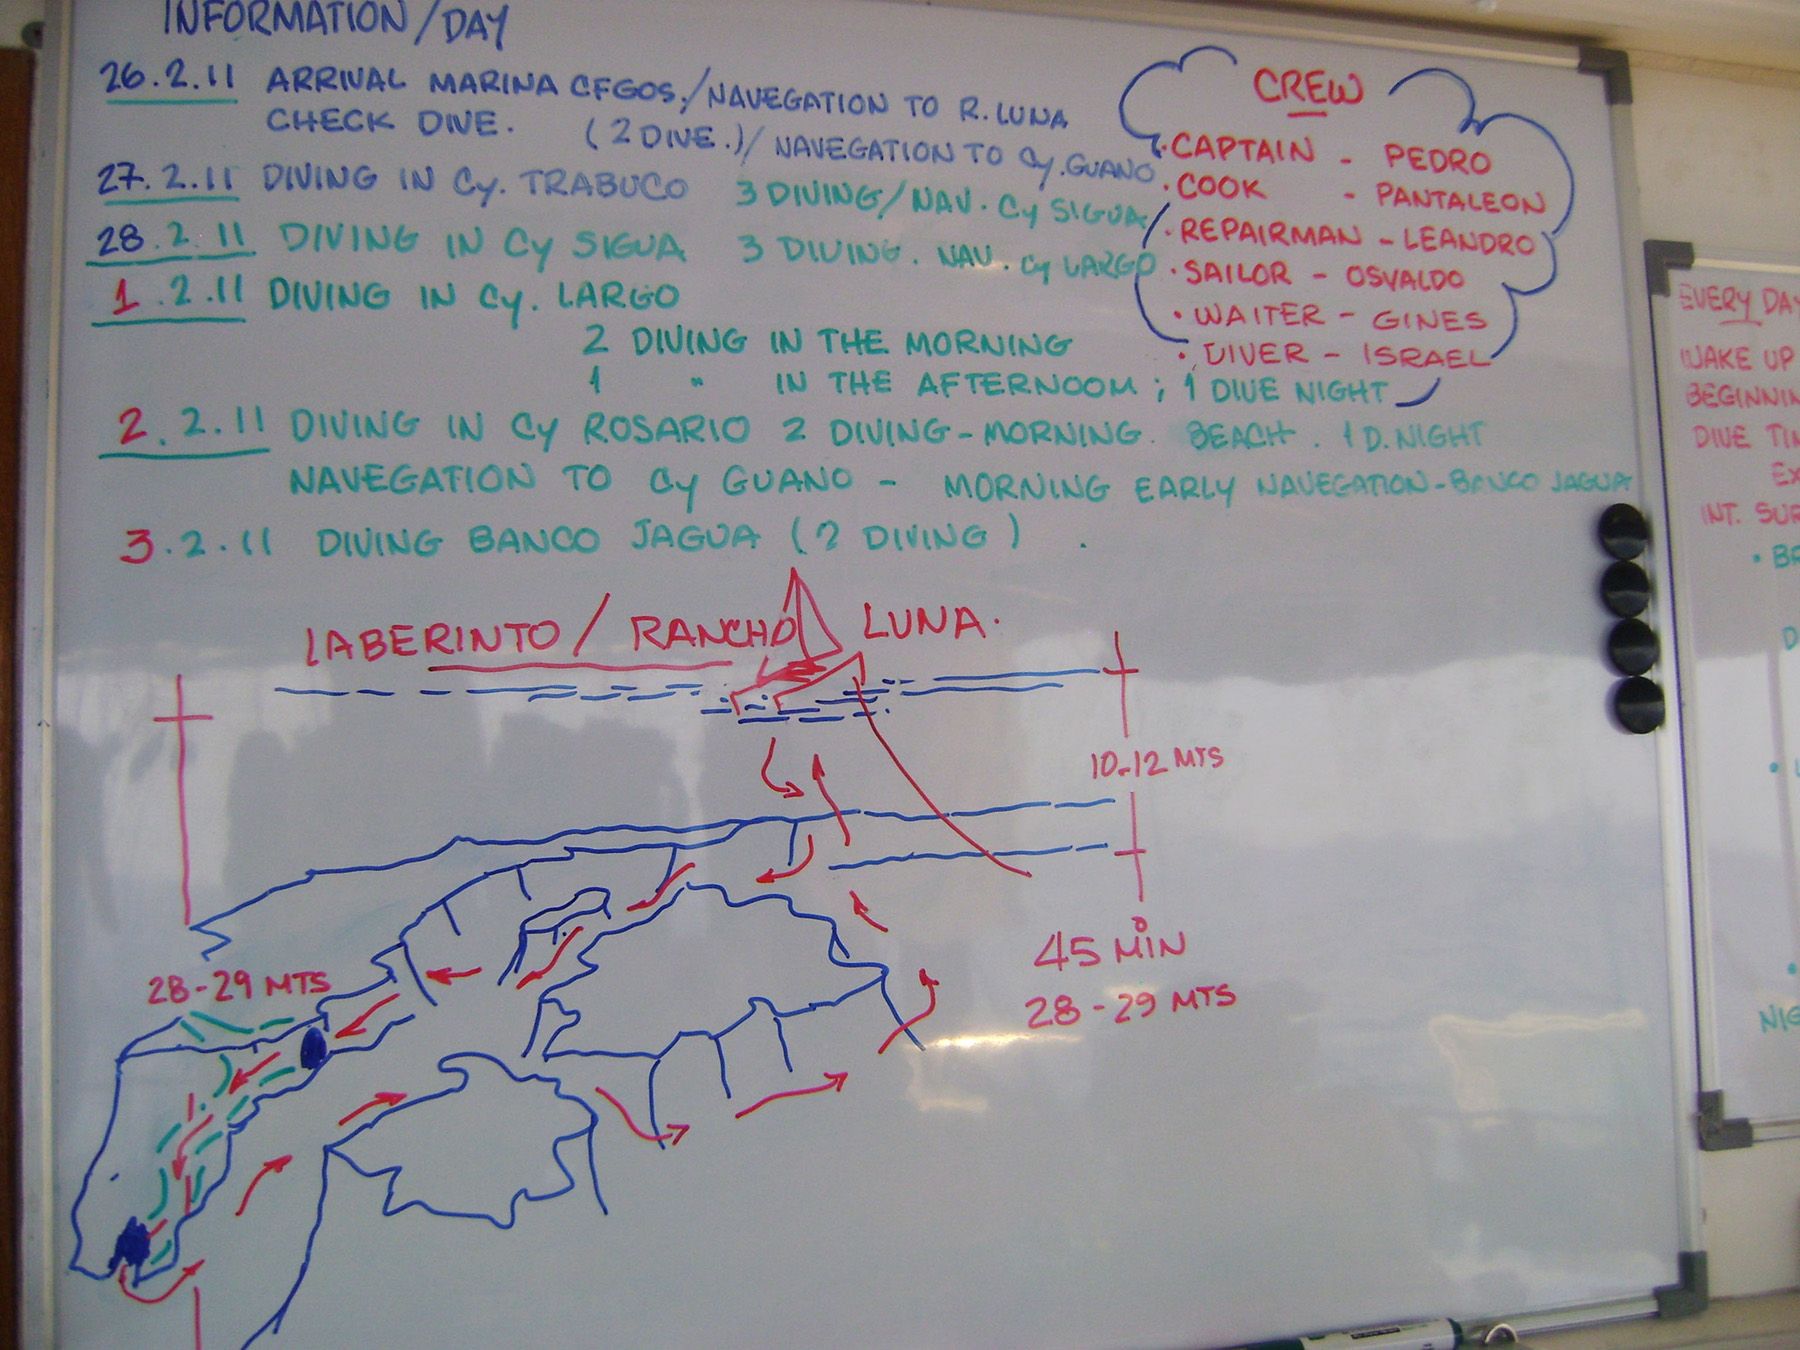 INFORMATION/DAY
26.2.11 ARRIVAL MARINA CFGOS,/NAVEGATION TO R. LUNA
CHECK DIVE. (2 DIVE.)/ NAVEGATION TO Cy. GUANO
27.2.11 DIVING IN Cy. TRABUCO 3 DIVING/NAV. Cy SIGUA
28.2.11 DIVING IN Cy SIGUA 3 DIVING. NAV. Cy LARGO
1.2.11 DIVING IN Cy. LARGO
2 DIVING IN THE MORNING
1 " IN THE AFTERNOOM; 1 DIVE NIGHT
2.2.11 DIVING IN Cy ROSARIO 2 DIVING-MORNING. BEACH. 1 D. NIGHT
NAVEGATION TO Cy GUANO - MORNING EARLY NAVEGATION-BANCO JAGUA
3.2.11 DIVING BANCO JAGUA (2 DIVING).
CREW
· CAPTAIN - PEDRO
· COOK - PANTALEON
· REPAIRMAN - LEANDRO
· SAILOR - OSVALDO
· WAITER - GINES
· DIVER - ISRAEL
LABERINTO / RANCHO LUNA.
10-12 MTS
28-29 MTS
45 MIN
28-29 MTS
EVERY DAY
WAKE UP
BEGINNIN
DIVE TI
EX
INT. SUR
· BR
D
NIG